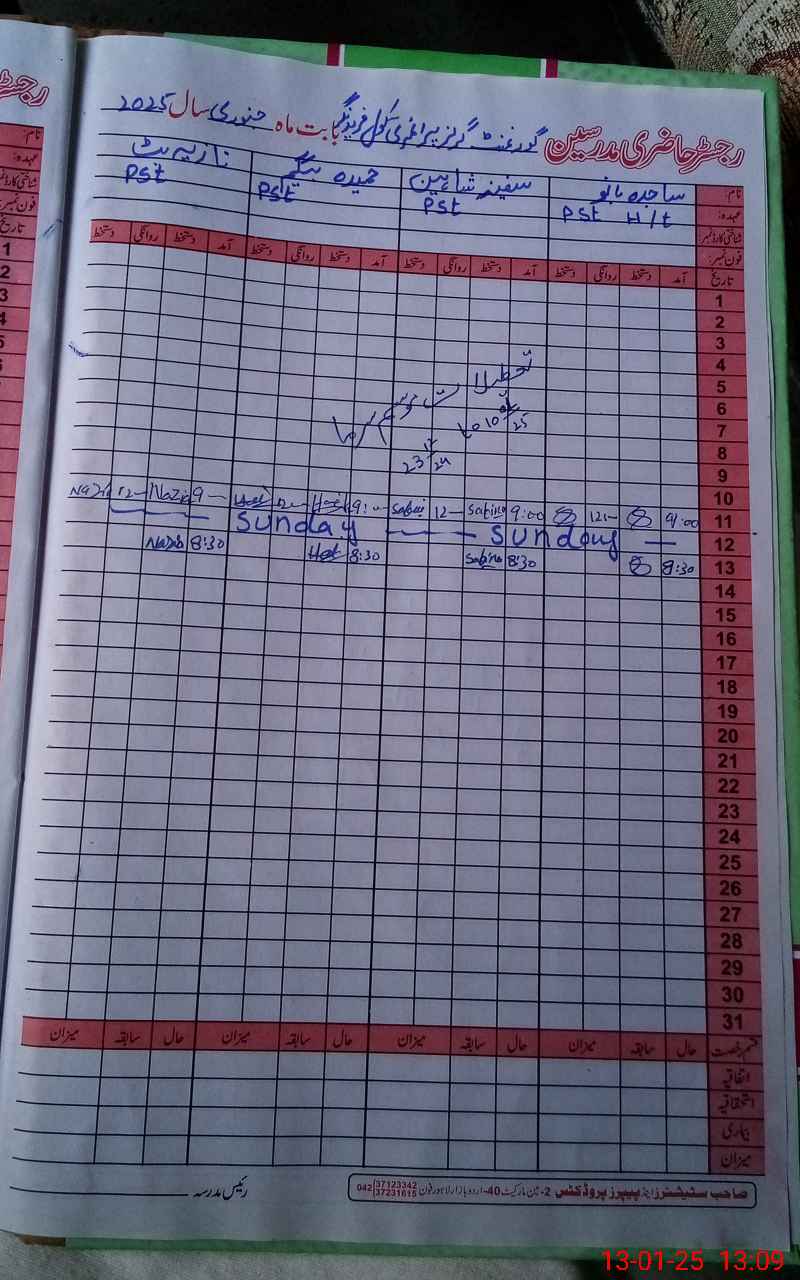 رجسٹر حاضری مدرسین گورنمنٹ گرلز پرائمری سکول بابت ماہ جنوری سال 2025
نام: ساجدہ بانو سفینہ شاہین حمیدہ بیگم نازیہ بٹ
عہدہ: PST H/t PST PST PST
شناختی کارڈ نمبر:
فون نمبر:
تاریخ آمد دستخط روانگی دستخط آمد دستخط روانگی دستخط آمد دستخط روانگی دستخط آمد دستخط روانگی دستخط
1
2
3
4
5
تعطیلات موسم سرما
6
7
23 12/24 to 10 01/25
8
9
10
11 9:00 12:- 9:00 Sabina 12- 9:- 12- 9- Nazia 12-
12 Sunday Sunday
13 8:30 8:30 Sabina 8:30 8:30 Nazia
14
15
16
17
18
19
20
21
22
23
24
25
26
27
28
29
30
31
قسم رخصت حال سابقہ میزان حال سابقہ میزان حال سابقہ میزان حال سابقہ میزان
اتفاقیہ
استحقاقیہ
بیماری
میزان
صاحب سٹیشنرز اینڈ پیپرز پروڈکٹس 2-مین مارکیٹ 40-اردو بازار لاہور فون 042 37123342 37231615
رئیس مدرسہ
رجسٹر
نام:
عہدہ:
شناختی کارڈ نمبر
فون نمبر:
تاریخ
1
2
3
4
5
13-01-25 13:09